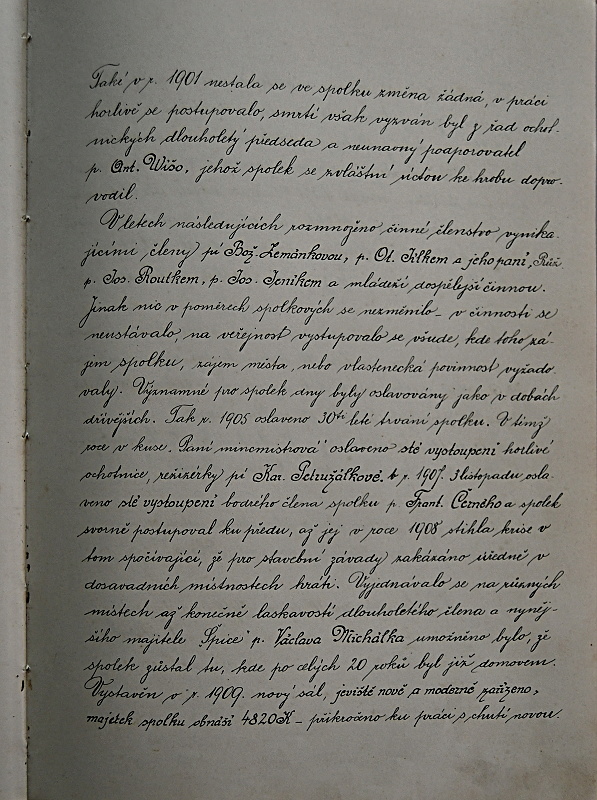 Také v r. 1901 nestala se ve spolku změna žádná, v práci
horlivě se postupovalo, smrtí však vyzván byl z řad ochot-
nických dlouholetý předseda a neunavný podporovatel
p. Ant. Wišo, jehož spolek se zvláštní úctou ke hrobu dopro-
vodil.
V letech následujících rozmnoženo činné členstvo vynika-
jícími členy pí Bož. Zemánkovou, p. Ot. Jílkem a jeho paní, Růž.
p. Jos. Routkem, p. Jos. Jeníkem a mládeží dospělejší činnou.
Jinak nic v poměrech spolkových se nezměnilo – v činnosti se
neustávalo, na veřejnost vystupovalo se všude, kde toho zá-
jem spolku, zájem města, nebo vlastenecká povinnost vyžado-
valy. Významné pro spolek dny byly oslavovány jako v dobách
dřívějších. Tak r. 1905 oslaveno 30ti leté trvání spolku. V týmž
roce v kuse „Paní mincmistrová" oslaveno sté vystoupení horlivé
ochotnice, režisérky pí Kar. Petružálkové, r. 1907. 3 listopadu osla-
veno sté vystoupení bodrého člena spolku p. Frant. Černého a spolek
svorně postupoval ku předu, až jej v roce 1908 stihla krise v
tom spočívající, že pro stavební závady zakázáno úředně v
dosavadních místnostech hráti. Vyjednávalo se na různých
místech až konečně laskavostí dlouholetého člena a nyněj-
šího majitele „Špice" p. Václava Michálka umožněno bylo, že
spolek zůstal tu, kde po celých 20 roků byl již domovem.
Vystavěn v r. 1909. nový sál, jeviště nově a moderně zařízeno,
majetek spolku obnáší 4820K – přikročeno ku práci s chutí novou.